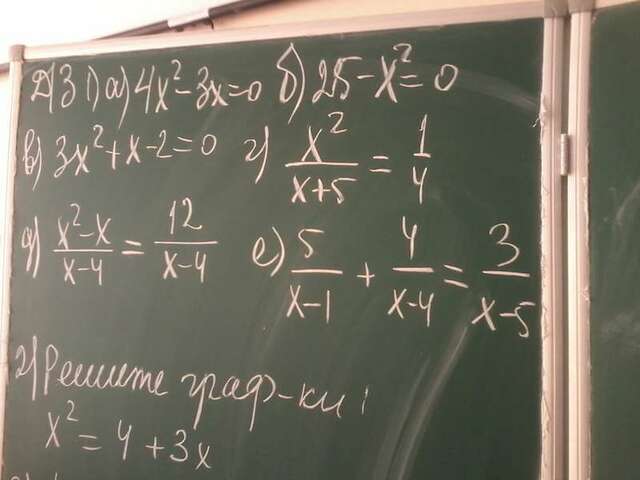 Д/З 1) а) 4x² - 3x = 0 б) 25 - x² = 0
в) 3x² + x - 2 = 0 г) x²/(x+5) = 1/4
д) (x² - x)/(x - 4) = 12/(x - 4) е) 5/(x - 1) + 4/(x - 4) = 3/(x - 5)
2) Решите граф-ки
x² = 4 + 3x